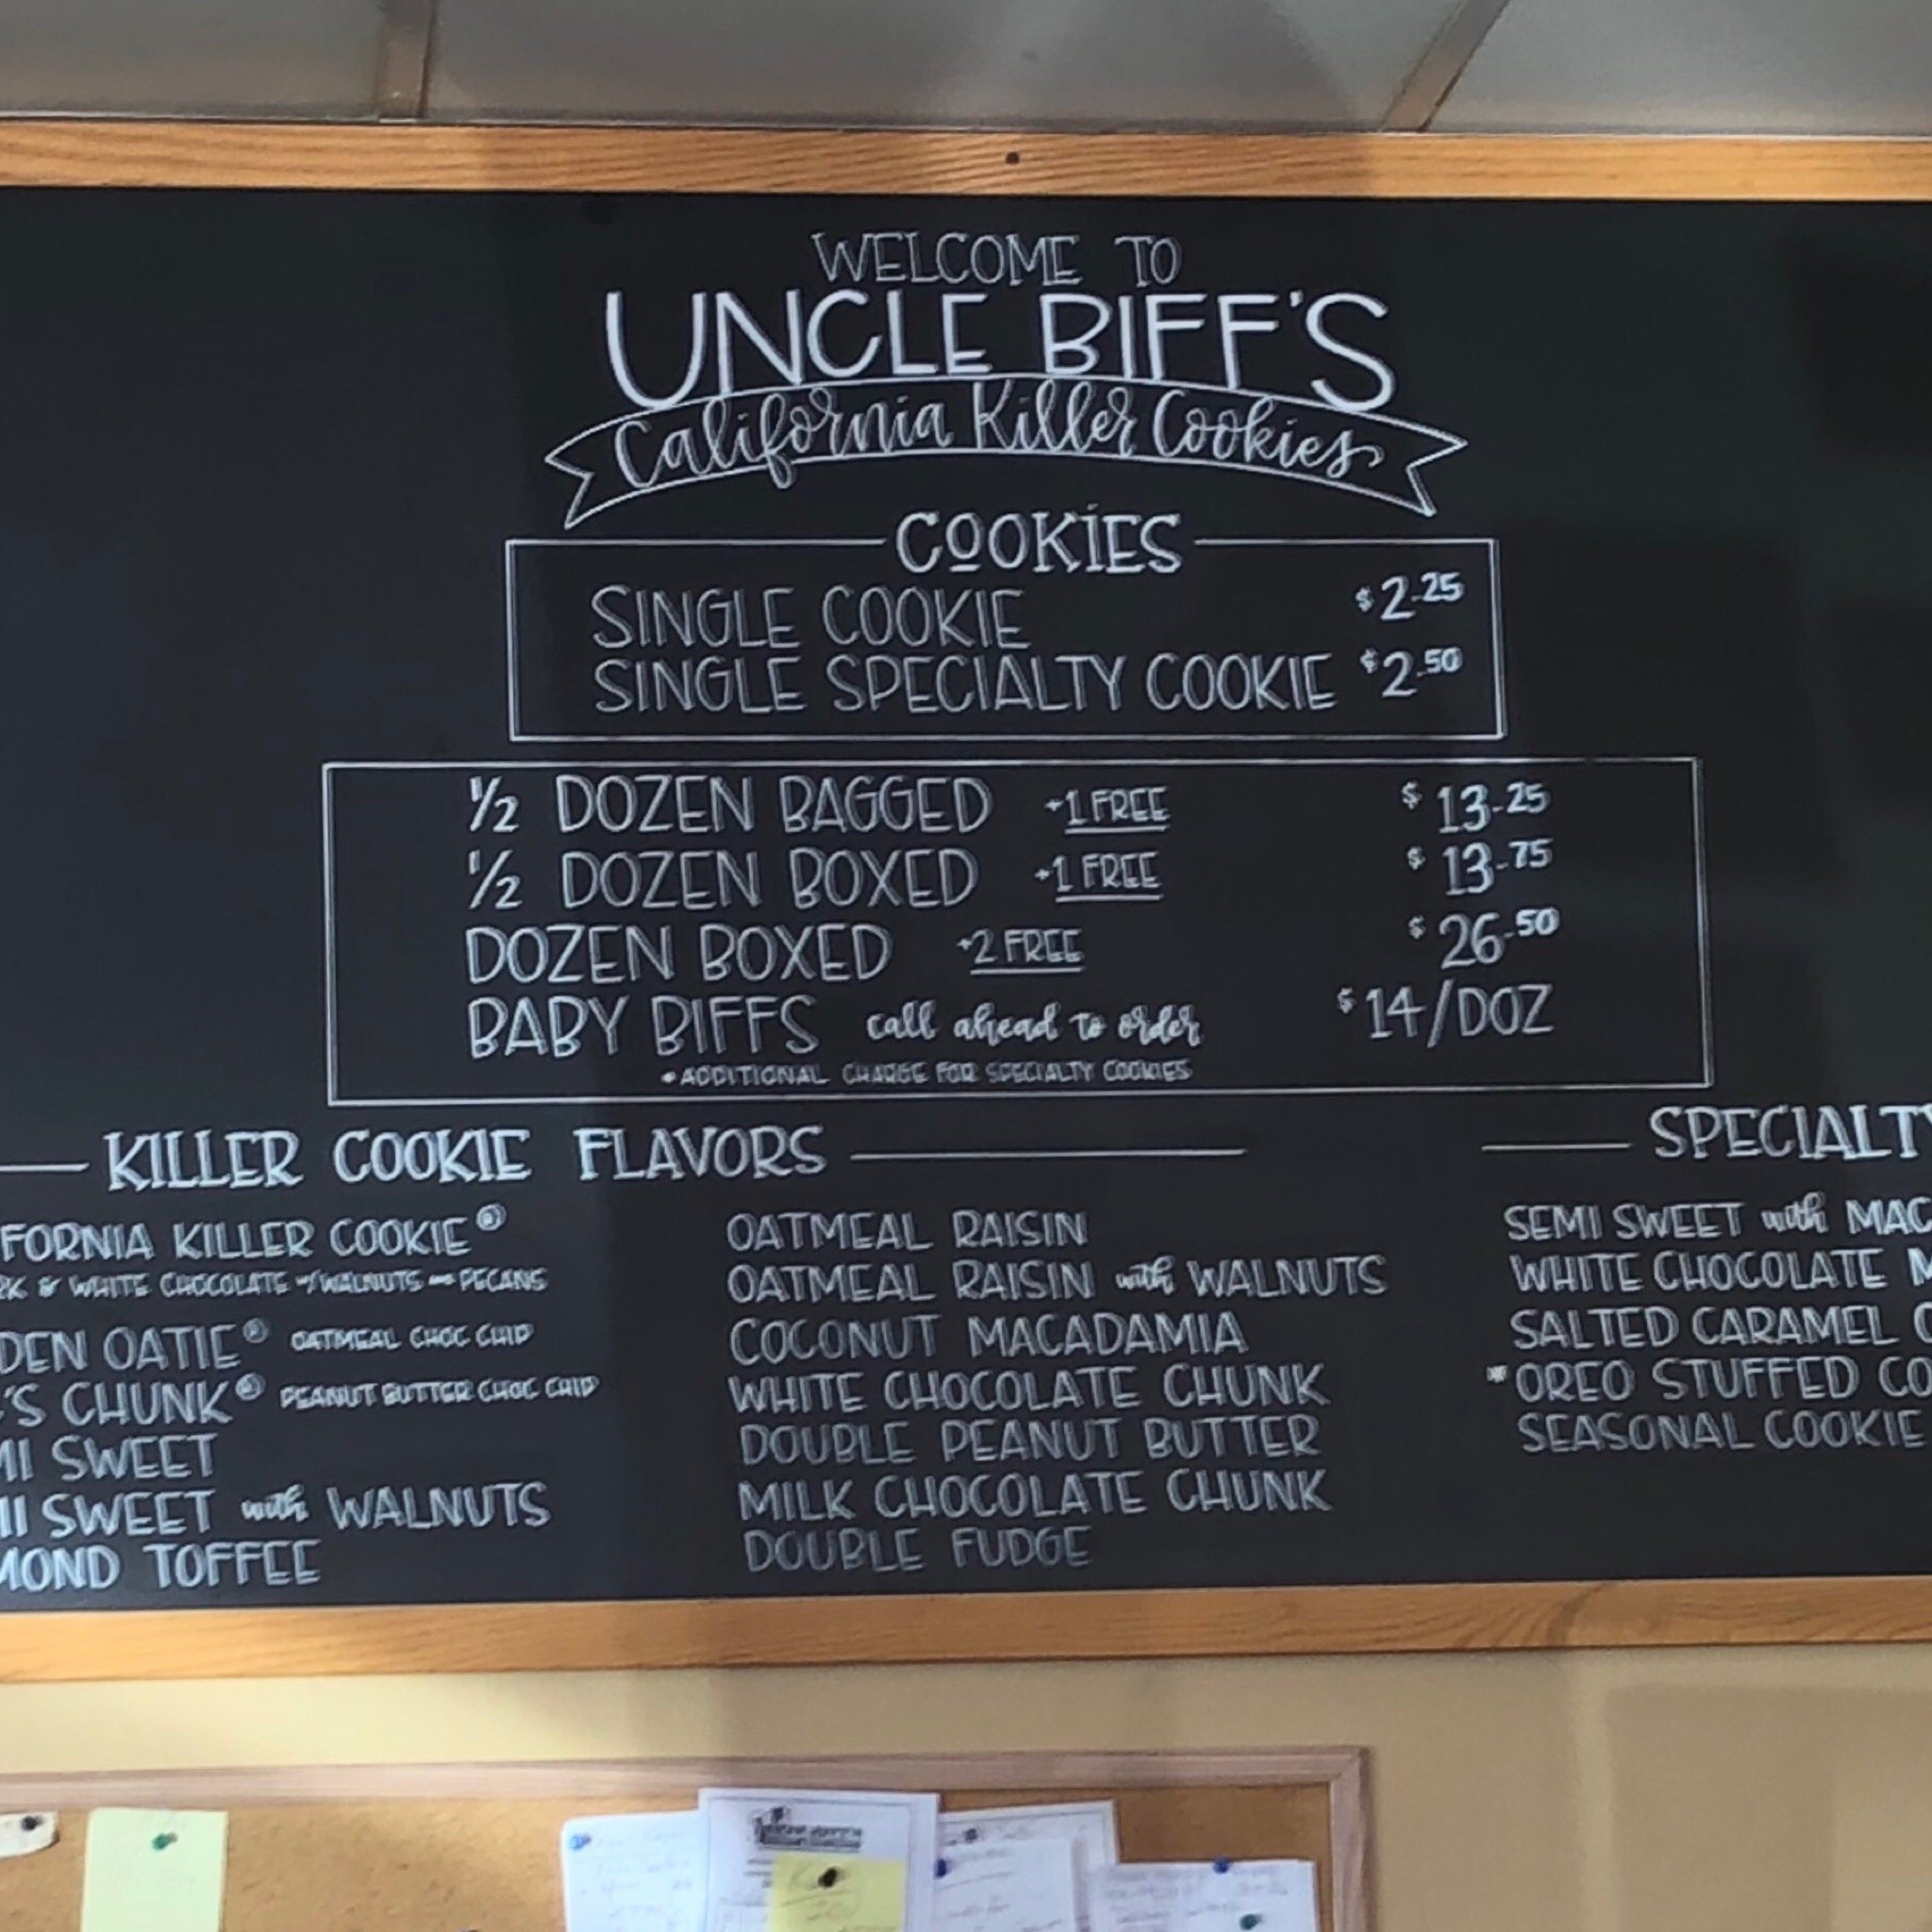 WELCOME TO
UNCLE BIFF'S
California Killer Cookies
COOKIES
SINGLE COOKIE $2.25
SINGLE SPECIALTY COOKIE $2.50
1/2 DOZEN BAGGED +1 FREE $13.25
1/2 DOZEN BOXED +1 FREE $13.75
DOZEN BOXED +2 FREE $26.50
BABY BIFFS call ahead to order $14/DOZ
*ADDITIONAL CHARGE FOR SPECIALTY COOKIES
KILLER COOKIE FLAVORS
FORNIA KILLER COOKIE®
RK & WHITE CHOCOLATE w/WALNUTS and PECANS
DEN OATIE® OATMEAL CHOC CHIP
'S CHUNK® PEANUT BUTTER CHOC CHIP
MI SWEET
MI SWEET with WALNUTS
MOND TOFFEE
OATMEAL RAISIN
OATMEAL RAISIN with WALNUTS
COCONUT MACADAMIA
WHITE CHOCOLATE CHUNK
DOUBLE PEANUT BUTTER
MILK CHOCOLATE CHUNK
DOUBLE FUDGE
SPECIALTY
SEMI SWEET with MAC
WHITE CHOCOLATE M
SALTED CARAMEL C
*OREO STUFFED CO
SEASONAL COOKIE